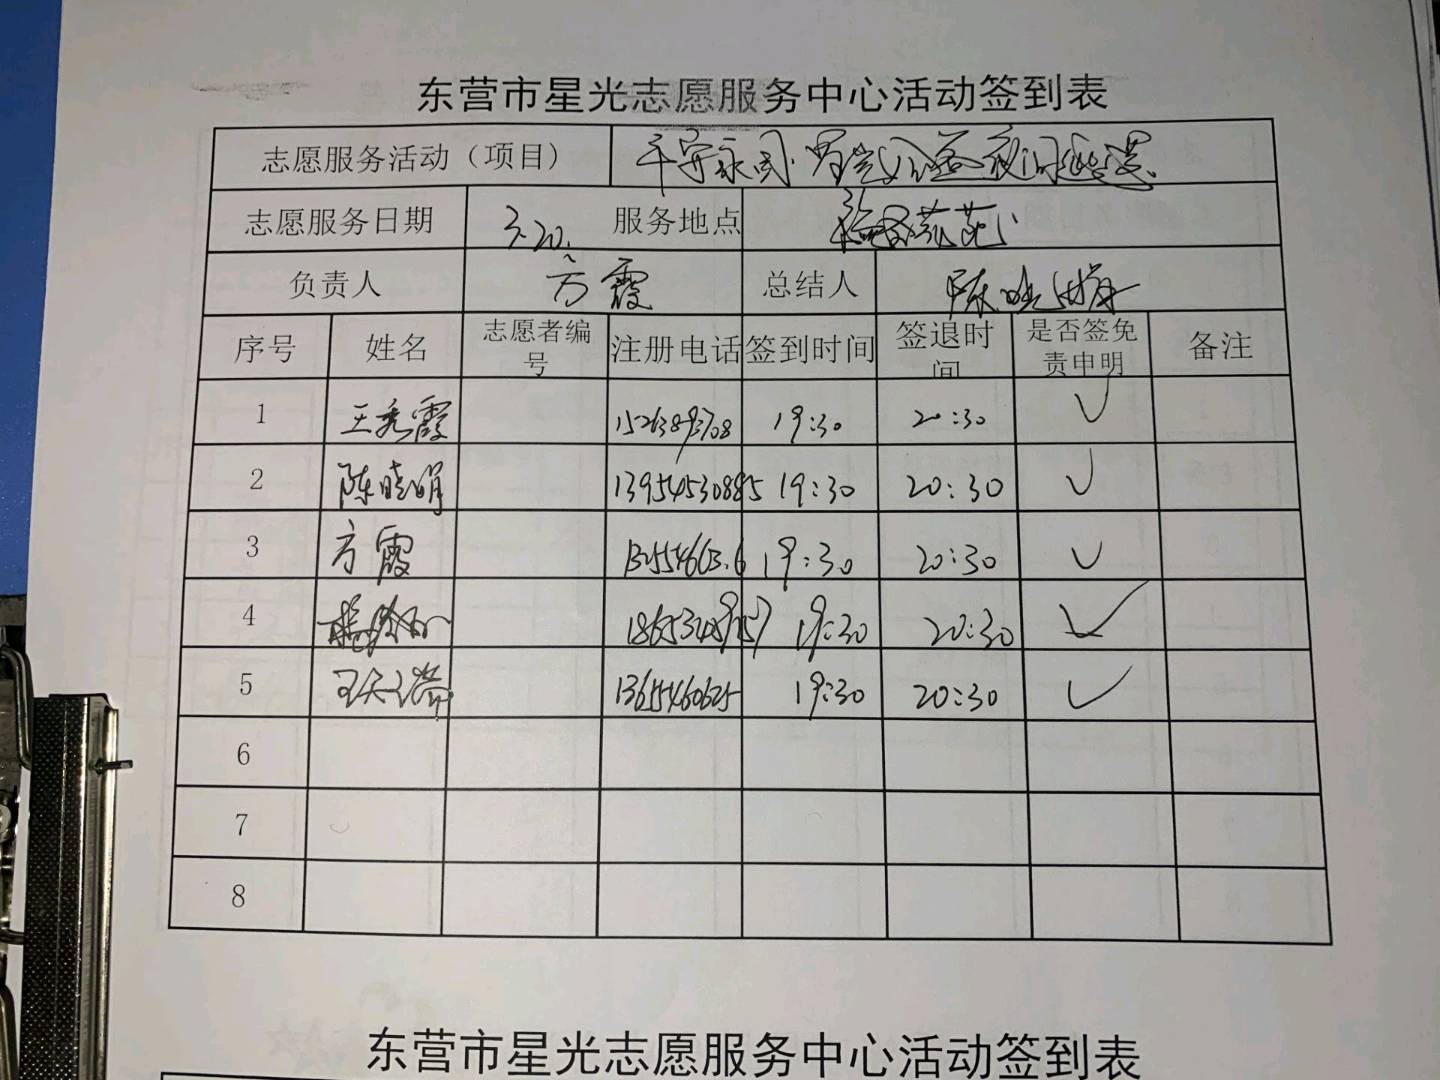 东营市星光志愿服务中心活动签到表
志愿服务活动（项目） 平安永同
志愿服务日期 3.20. 服务地点
负责人 方霞 总结人 陈晓娟
序号 姓名 志愿者编号 注册电话 签到时间 签退时间 是否签免责申明 备注
1 王秀霞 15263893708 19:30 20:30 ✓
2 陈晓娟 13954530885 19:30 20:30 ✓
3 方霞 19:30 20:30 ✓
4 19:30 20:30 ✓
5 13655460625 19:30 20:30 ✓
6
7
8
东营市星光志愿服务中心活动签到表